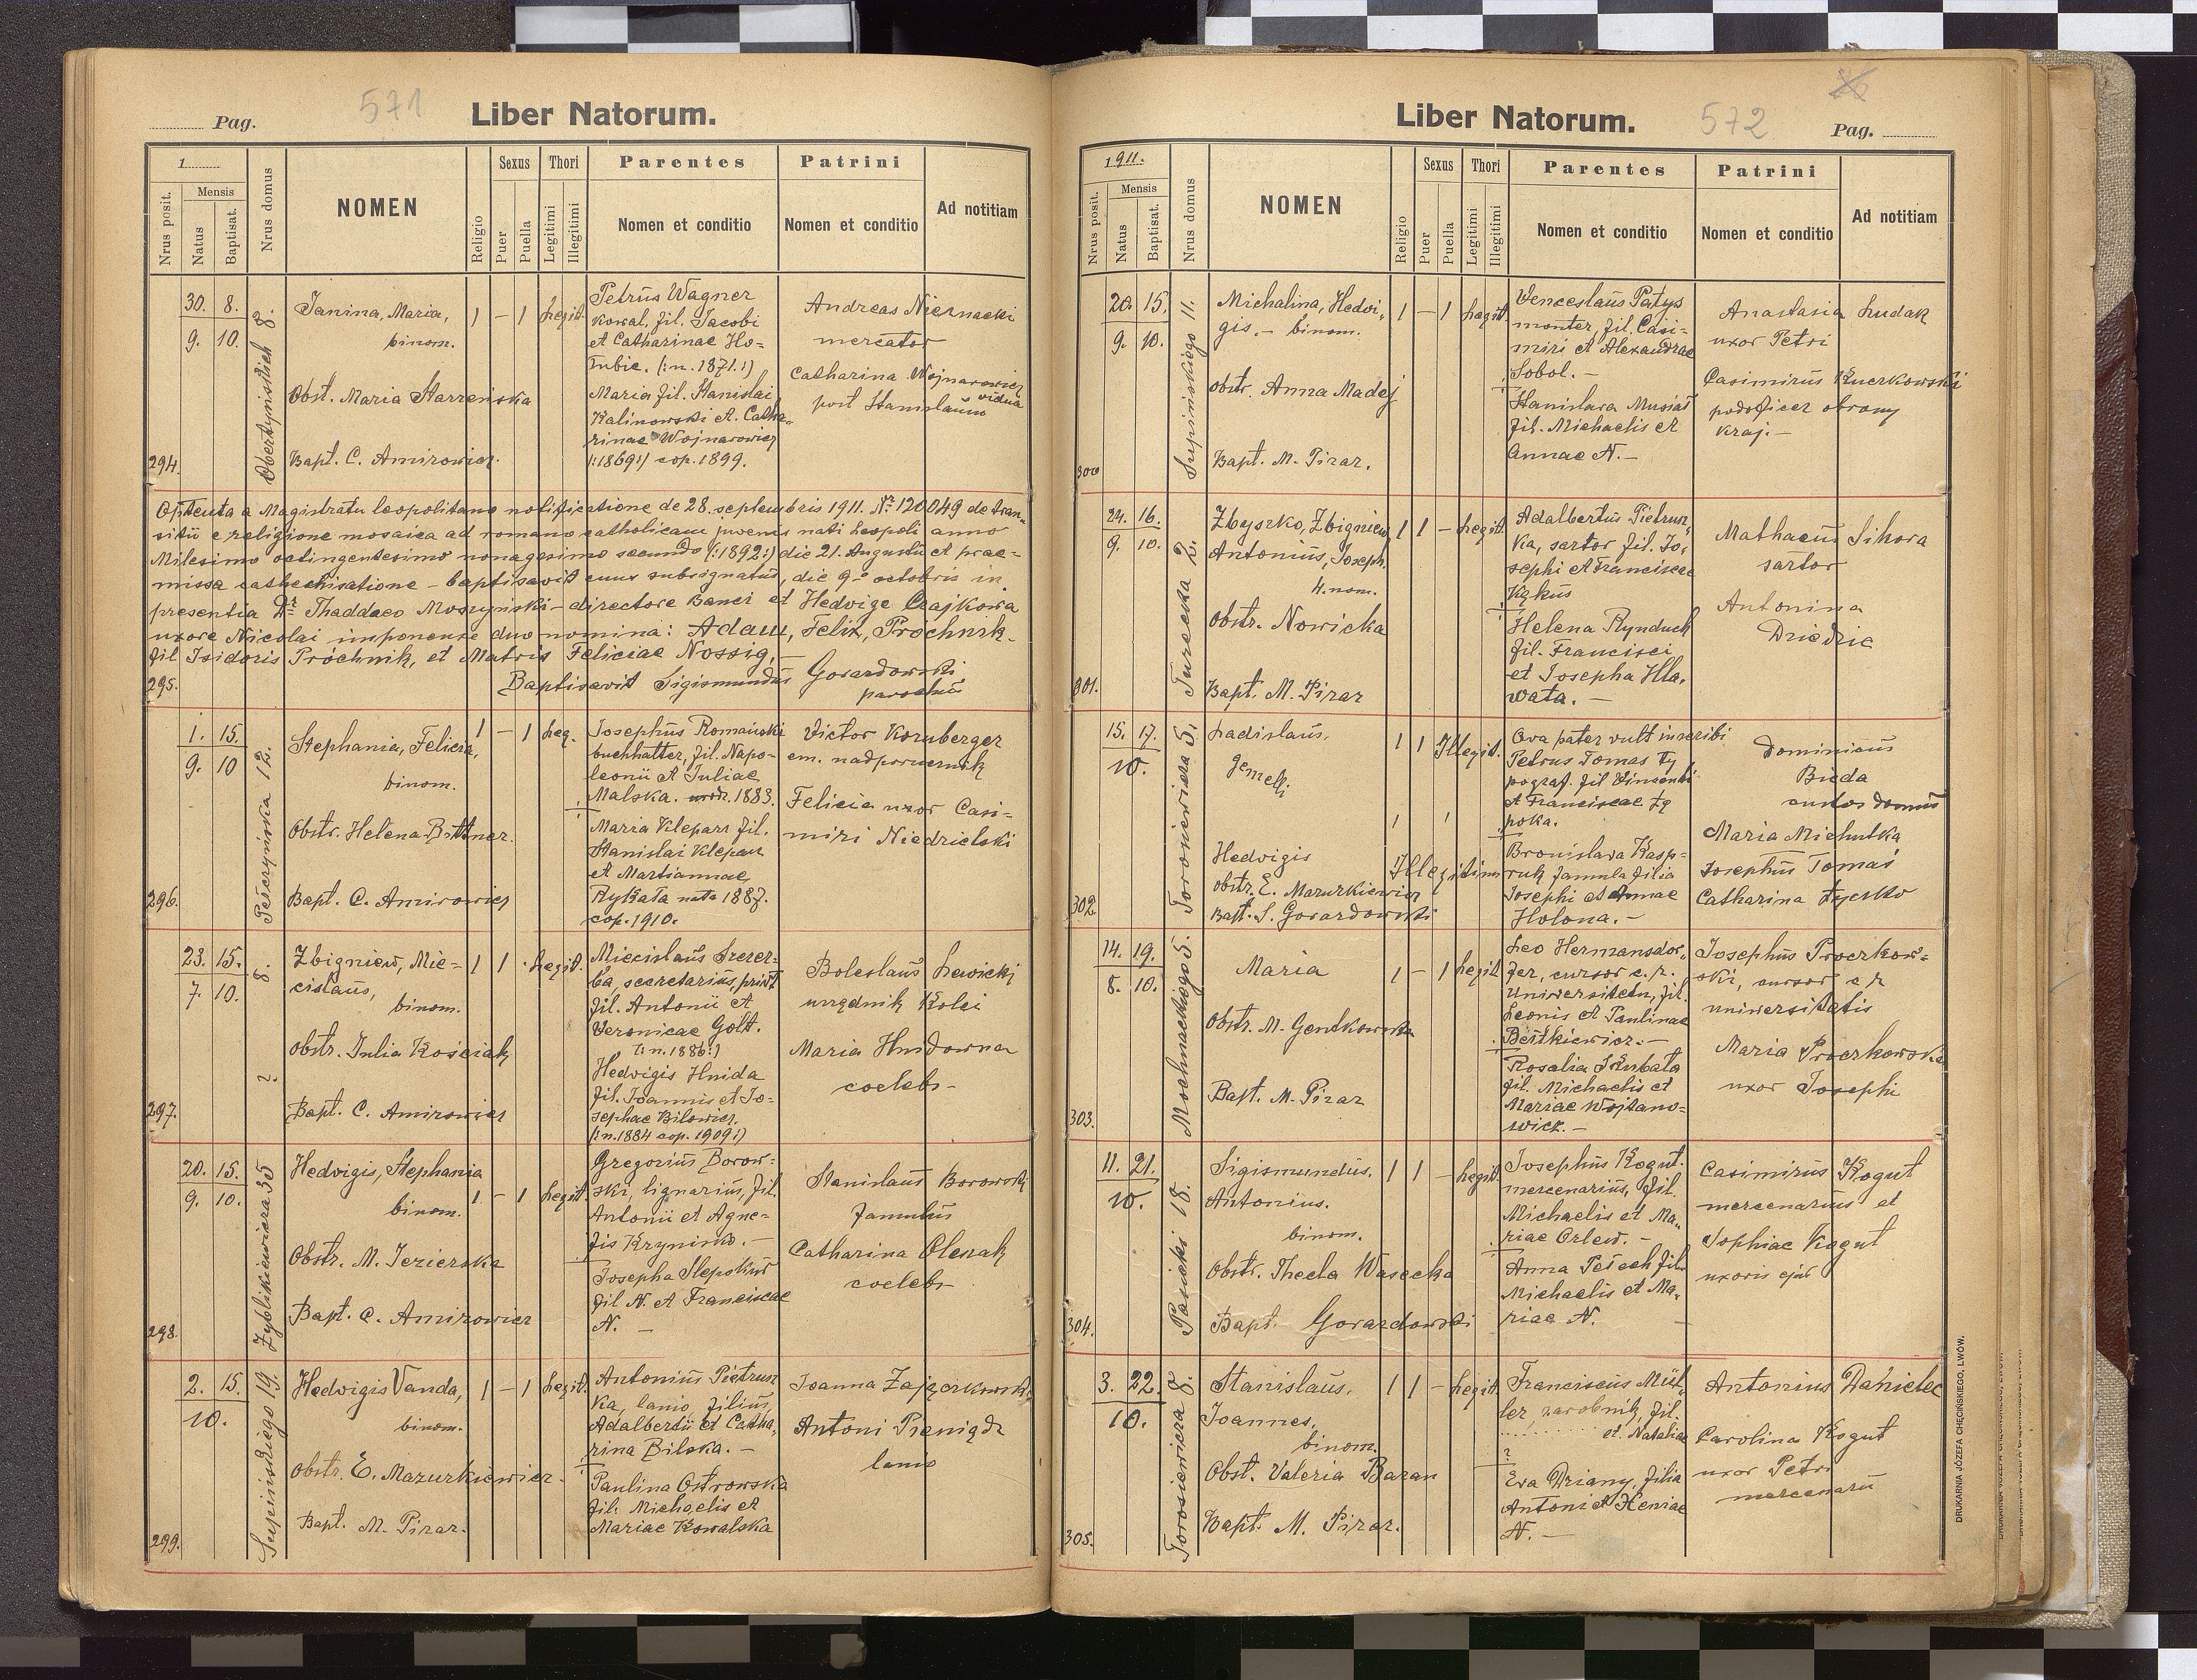 571
Pag.
Liber Natorum.
1
Nrus posit.
Mensis
Natus
Baptisat.
Nrus domus
NOMEN
Religio
Sexus
Puer
Puella
Thori
Legitimi
Illegitimi
Parentes
Nomen et conditio
Patrini
Nomen et conditio
Ad notitiam
294.
30. 8.
9. 10.
Obertyńskich 8.
Janina, Maria,
binom.
Obst. Maria Starzeńska
Bapt. C. Amirowicz.
1 – 1 Legit.
Petrus Wagner
kowal, fil. Jacobi
et Catharinae Ho-
(: n. 1871. :)
Maria fil. Stanislai
Kalinowski et Catha-
rinae Wojnarowicz
(:1869:) cop. 1899.
Andreas Niernacki
mercator
Catharina Wojnarowicz
post Stanislaum vidua
Optenta a Magistratu leopolitano notificatione de 28. septembris 1911. Nr. 120049 de tran-
sitū e religione mosaica ad romano catholicam juvenis nati Leopoli anno
Milesimo octingentesimo nonagesimo secundo (:1892:) die 21. Augusti et prae-
missa cathechisatione – baptisavit eum subsignatus, die 9-o octobris in
presentia Dr. Thaddaeo Moszyński – directore Banci et Hedvige Czajkowa
uxore Nicolai imponense duo nomina: Adam, Felix, Prochnik
fil Isidoris Próchnik, et Matris Feliciae Nossig, –
295. Baptisavit Sigismundus Gorazdowski
parochus
296.
1. 15.
9. 10
Pełczyńska 12.
Stephania, Felicia,
binom.
Obstr. Helena Bittner.
Bapt. C. Amirowicz
1 – 1 Leg.
Josephus Romański
buchhalter, fil. Napo-
leonii et Juliae
Malska. urodz. 1883.
Maria Kleparz fil.
Stanislai Klepar
et Martiannae,
Rykała nata 1887.
cop. 1910.
Victor Kornberger
em. nadporucznik
Felicia uxor Casi-
miri Niedzielski
297.
23. 15.
7. 10.
? 8.
Zbigniew, Mie-
cislaus,
binom.
Obstr. Julia Kościak
Bapt. C. Amirowicz
1 1 · Legit.
Miecislaus Szczer-
ba, secretarius, privt
fil. Antonii et
Veronicae Golt.
(: n. 1886 :)
Hedvigis Hnida
fil. Joannis et Jo-
sephae Bilowicz.
(: n. 1884 cop. 1909 :)
Boleslaus Lewicki
urzędnik kolei
Maria Hnidowna
coelebs –
298.
20. 15.
9. 10.
Zyblikiewicza 35
Hedvigis, Stephania
binom.
Obstr. M. Jezierska
Bapt. C. Amirowicz
1 – 1 Legit.
Gregorius Borow-
ski, lignarius, fil.
Antonii et Agne-
tis Krynisko. –
Josepha Slepokur
fil N. et Franciscae
N. –
Stanislaus Borowski
famulus
Catharina Olenak
coelebs
299.
2. 15.
10.
Supińskiego 19.
Hedvigis Vanda,
binom.
Obstr. E. Mazurkiewicz.
Bapt. M. Pirar.
1 – 1 Legit.
Antonius Pietrusz
ka, lanio, filius,
Adalbertii et Catha-
rina Bilska. –
Paulina Ostrowska
fil. Michaelis et
Mariae Kowalska
Joanna Zajączkowsk.
Antoni Pieniądz
lanio
Liber Natorum.
572
Pag.
1911.
Nrus posit.
Mensis
Natus
Baptisat.
Nrus domus
NOMEN
Religio
Sexus
Puer
Puella
Thori
Legitimi
Illegitimi
Parentes
Nomen et conditio
Patrini
Nomen et conditio
Ad notitiam
300
20. 15.
9. 10.
Supińskiego 11.
Michalina, Hedvi-
gis. – binom.
Obstr. Anna Madej
Bapt. M. Pirar.
1 – 1 Legit.
Venceslaus Patys
monter, fil. Casi-
miri et Alexandrae
Sobol. –
Stanislava Musiał
fil. Michaelis et
Annae N. –
Anastasia Ludak
uxor Petri
Casimirus Kuczkowski
podoficer obrony
kraj. –
301.
24. 16.
9. 10.
Turecka 2.
Zbyszko, Zbigniew
Antonius, Joseph.
4. nom.
Obstr. Nowicka
Bapt. M. Pirar
1 1 – Legit.
Adalbertus Pietrusz-
ka, sartor fil. Jo-
sephi et Franciscae
Kąkus
Helena Rynduch
fil. Francisci
et Josepha Hla-
wata. –
Mathaeus Sikora
sartor
Antonina
Dziedzic
302.
15. 17.
10.
Torosiewicza 5.
Ladislaus,
gemelli
Hedvigis
obstr. E. Mazurkiewicz
Bapt. S. Gorazdowski
1 1 Illegit.
Illegitim
Qva pater vult inscribi
Petrus Tomas ty
pograf. fil Vincenti
et Franciscae Ły
poka.
Bronislava Kasp-
ruk famula filia
Josephi et Annae
Holona. –
Dominicus
Bieda
custos domus
Maria Michulka
Josephus Tomaś
Catharina Łyczko
303.
14. 19.
8. 10.
Mochnackiego 5.
Maria
Obstr. M. Gentkowska
Bapt. M. Pirar
1 – 1 Legit.
Leo Hermansdor-
fer, cursor c. r.
Uniwersitetu, fil.
Leonis et Paulinae
Bestkiewicz. –
Rosalia Skubata
fil. Michaelis et
Mariae Wojtano-
wicz. –
Josephus Proczkow-
ski, cursor c r
universitatis
Maria Proczkowska
uxor Josephi
304.
11. 21.
10.
Sigismundus,
Antonius.
binom.
Obstr. Thecla Wasecka
Bapt. Gorazdowski
1 1 – Legit.
Josephus Kogut.
mercenarius, fil.
Michaelis et Ma-
riae Orlew. –
Anna Pełech fil.
Michaelis et Ma-
riae N.
Casimirus Kogut
mercenarius et
Sophiae Kogut
uxoris ejus
305.
3. 22.
10.
Torosiewicza 8.
Stanislaus,
Joannes,
binom.
Obst. Valeria Baran
Bapt. M. Pirar.
1 1 – Legit.
Franciscus Mül-
ler, zarobnik, fil.
.......... et. Nataliae
?
Eva Driany, filia
Antoni et Xeniae
N. –
Antonius Danielec
Carolina Kogut
uxor Petri
mercenarii
DRUKARNIA JÓZEFA CHĘCIŃSKIEGO, LWÓW.